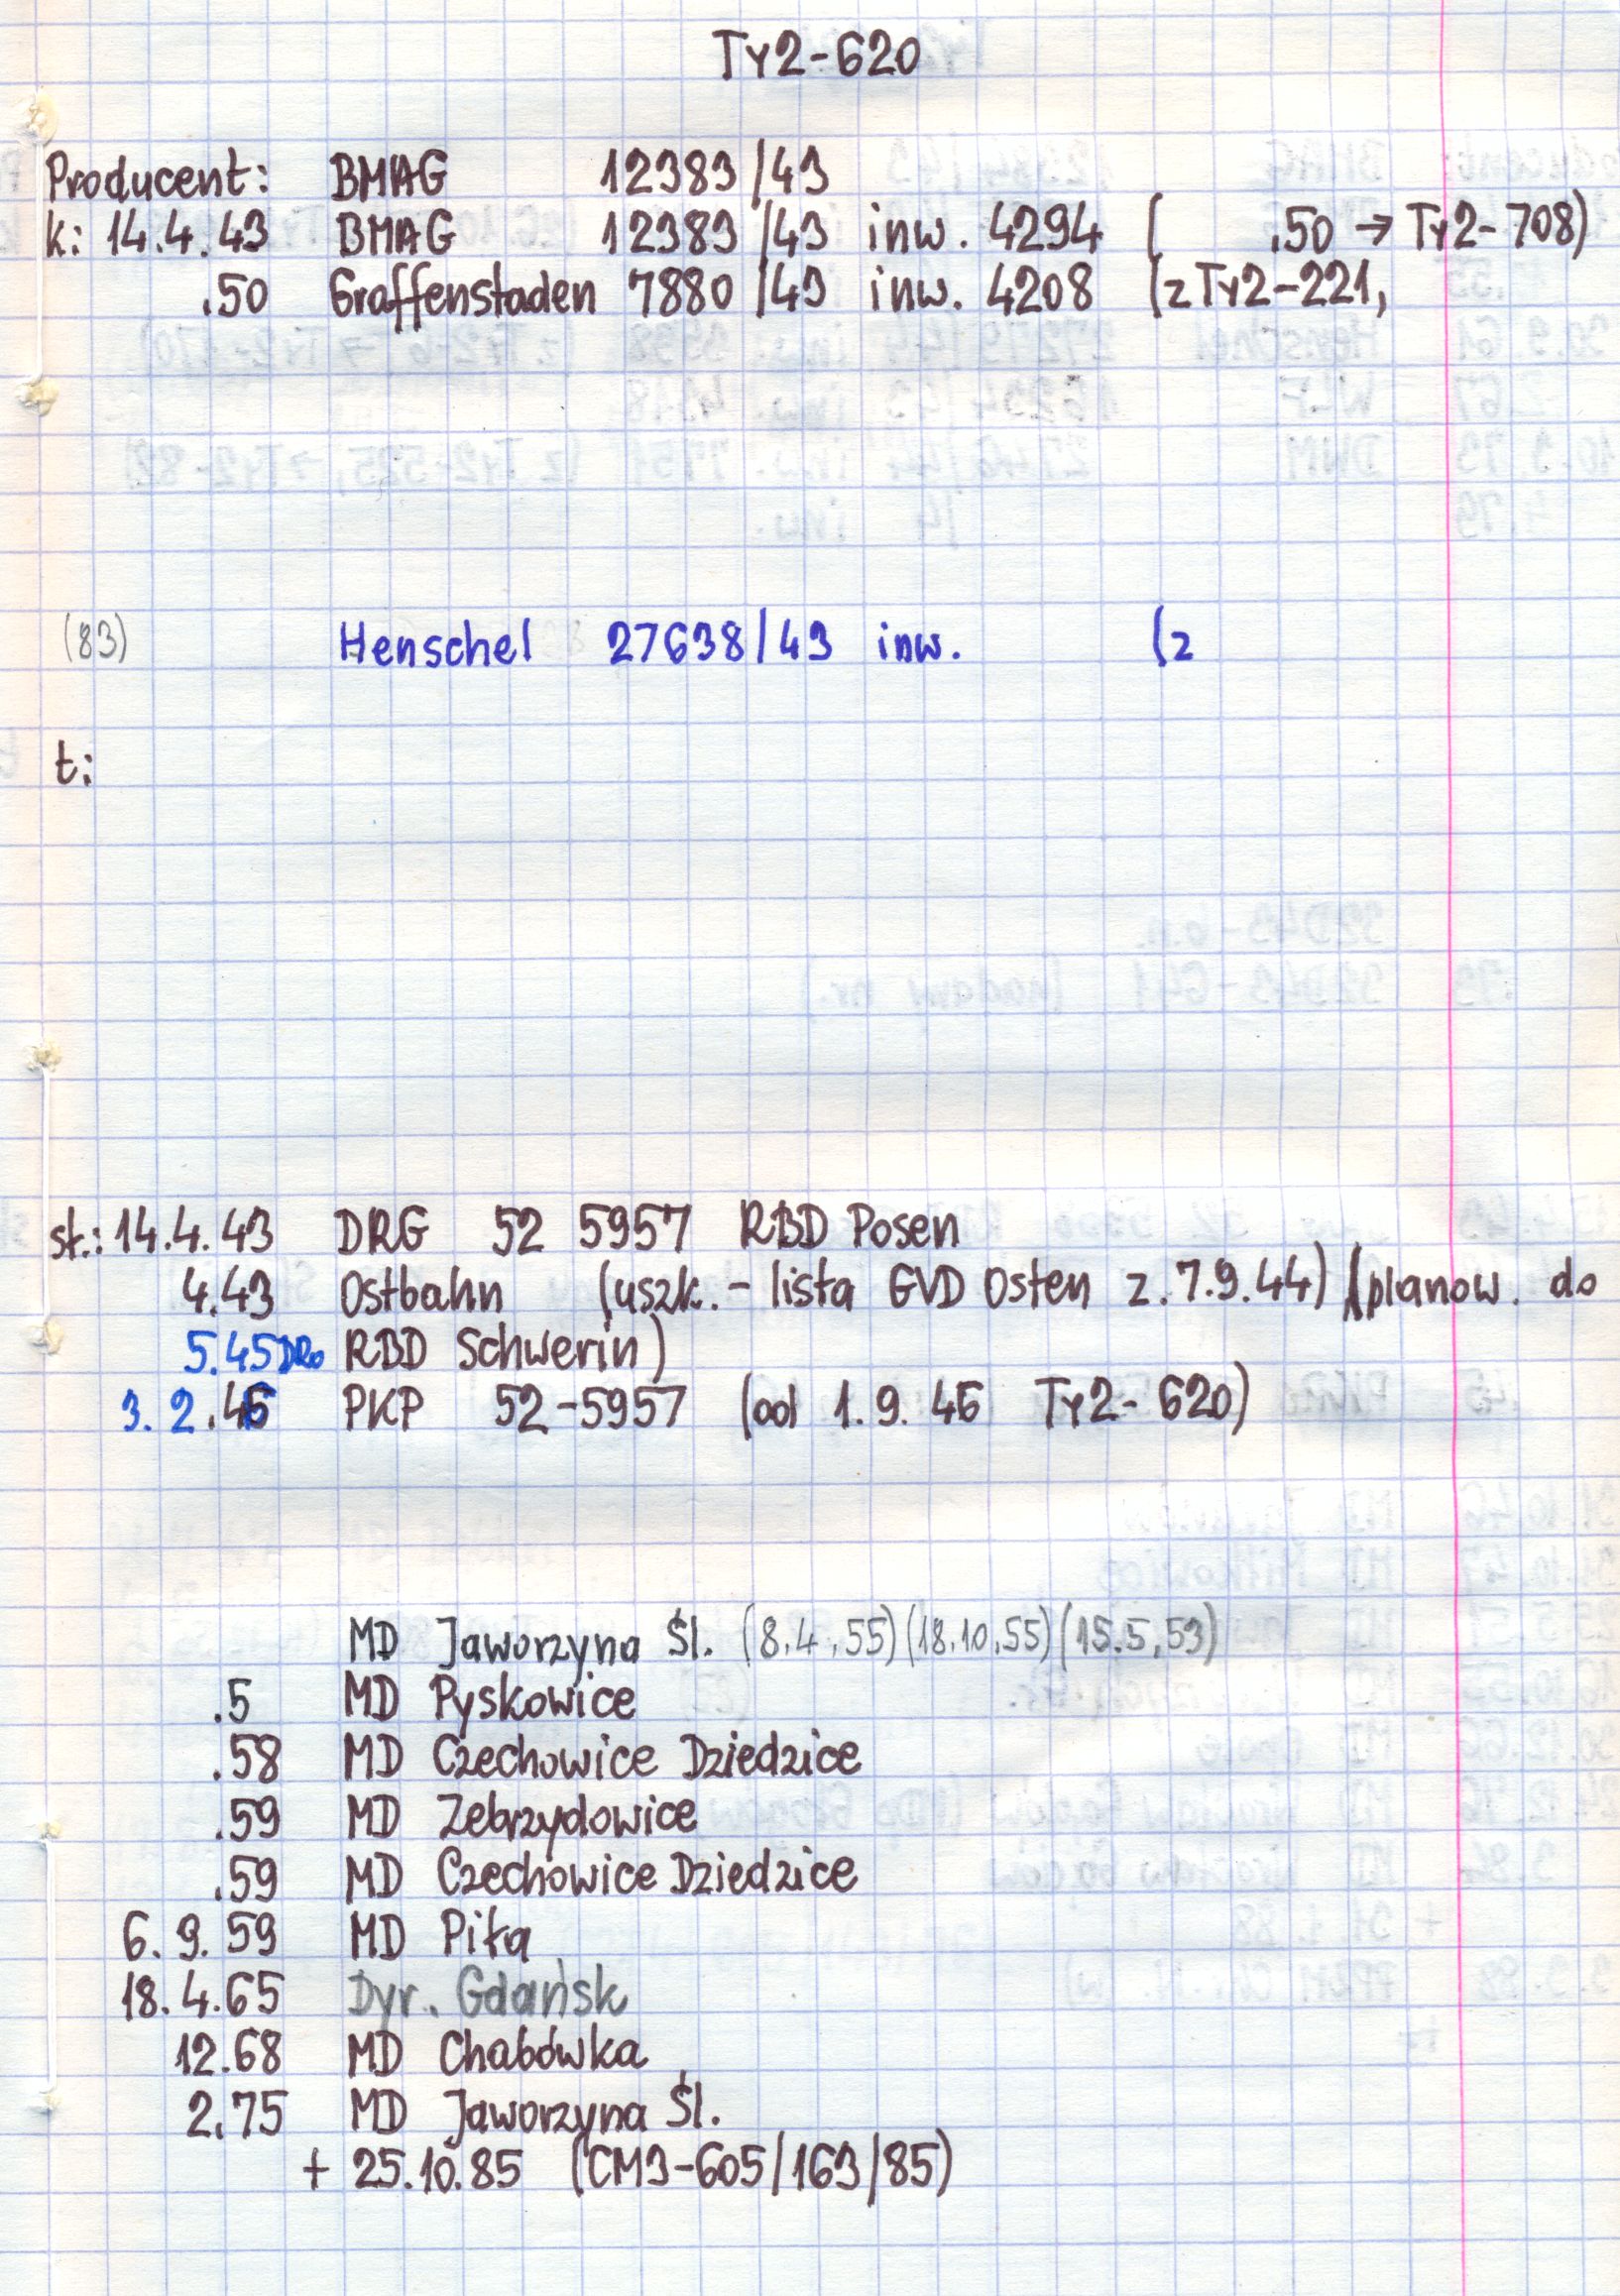 Ty2-620
Producent: BMAG 12383/43
k: 14.4.43 BMAG 12383/43 inw. 4294 ( .50 → Ty2-708)
.50 Graffenstaden 7880/43 inw. 4208 (z Ty2-221,
(83) Henschel 27638/43 inw. (z
t:
st.: 14.4.43 DRG 52 5957 RBD Posen
4.43 Ostbahn (uszk. - lista GVD Osten z.7.9.44) (planow. do
5.45 DRo RBD Schwerin)
3.2.46 PKP 52-5957 (od 1.9.46 Ty2-620)
MD Jaworzyna Śl. (8.4.55) (18.10.55) (15.5.53)
.5 MD Pyskowice
.58 MD Czechowice Dziedzice
.59 MD Zebrzydowice
.59 MD Czechowice Dziedzice
6.9.59 MD Piła
18.4.65 Dyr. Gdańsk
12.68 MD Chabówka
2.75 MD Jaworzyna Śl.
+ 25.10.85 (CM3-605/163/85)